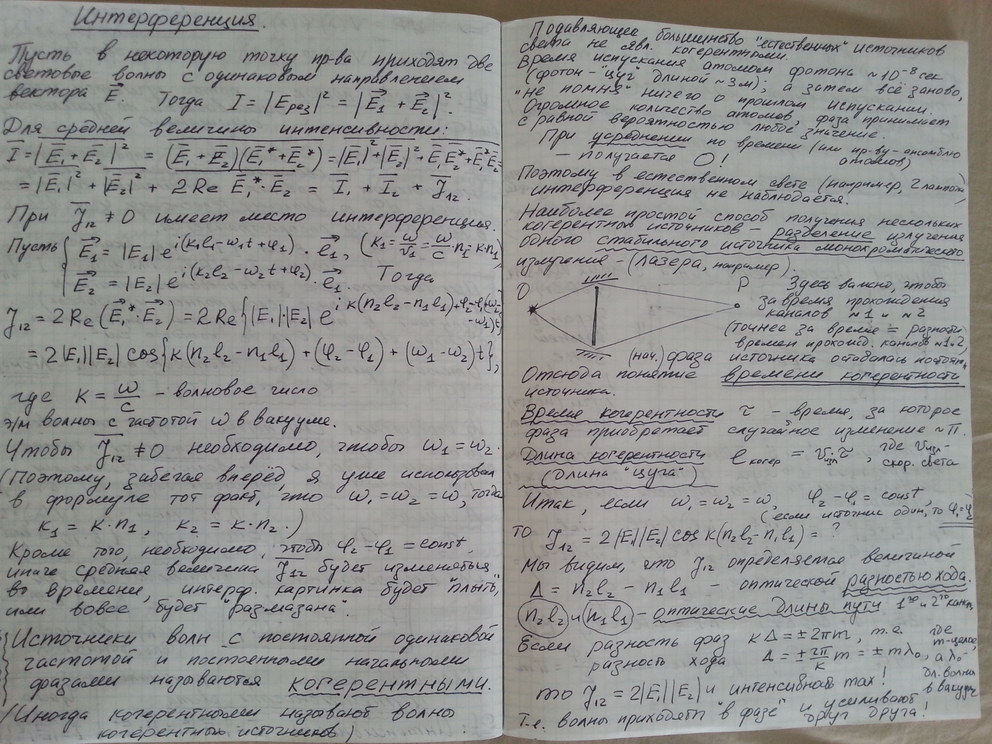 Интерференция.
Пусть в некоторую точку пр-ва приходят две
световые волны с одинаковым направлением
вектора E⃗. Тогда I = |E⃗рез|² = |E⃗₁ + E⃗₂|².
Для средней величины интенсивности:
I̅ = |E⃗₁ + E⃗₂|² = (E⃗₁ + E⃗₂)(E⃗₁* + E⃗₂*) = |E₁|² + |E₂|² + E₁E₂* + E₁*E₂
= |E₁|² + |E₂|² + 2Re E₁*·E₂ = I̅₁ + I̅₂ + J̅₁₂.
При J̅₁₂ ≠ 0 имеет место интерференция.
Пусть { E⃗₁ = |E₁| e^{i(k₁l₁ - ω₁t + φ₁)} · e⃗₁, (k₁ = ω/v₁ = ω/c · n₁ = k·n₁)
E⃗₂ = |E₂| e^{i(k₂l₂ - ω₂t + φ₂)} · e⃗₁. Тогда
J₁₂ = 2Re(E⃗₁*·E⃗₂) = 2Re{|E₁|·|E₂| e^{i k(n₂l₂ - n₁l₁) + φ₂ - φ₁ - (ω₂ - ω₁)t}
= 2|E₁||E₂| cos{k(n₂l₂ - n₁l₁) + (φ₂ - φ₁) + (ω₁ - ω₂)t},
где k = ω/c - волновое число
э/м волны с частотой ω в вакууме.
Чтобы J̅₁₂ ≠ 0 необходимо, чтобы ω₁ = ω₂.
(Поэтому, забегая вперёд, я уже использовал
в формуле тот факт, что ω₁ = ω₂ = ω, тогда
k₁ = k·n₁, k₂ = k·n₂.)
Кроме того, необходимо, чтобы φ₂ - φ₁ = const,
иначе средняя величина J₁₂ будет изменяться
во времени, интерф. картинка будет "плыть",
или вовсе будет "размазана".
Источники волн с постоянной одинаковой
частотой и постоянными начальными
фазами называются когерентными.
(Иногда когерентными называют волны
когерентных источников)
Подавляющее большинство "естественных" источников
света не явл. когерентными.
Время испускания атомом фотона ~10⁻⁸ сек
(фотон - "цуг" длиной ~3м); а затем всё заново,
"не помня" ничего о прошлом испускании.
Огромное количество атомов, фаза принимает
с равной вероятностью любое значение.
При усреднении по времени (или пр-ву - ансамблю
атомов)
— получается 0!
Поэтому в естественном свете (например, 2 лампочки)
интерференция не наблюдается.
Наиболее простой способ получения нескольких
когерентных источников - разделение излучения
одного стабильного источника монохроматического
излучения - (лазера, например).
O
P
Здесь важно, чтобы
за время прохождения
каналов ~1 и ~2
(точнее за время = разности
времен прохожд. каналов ~1 и ~2)
(нач.) фаза источника оставалась постоян.
Отсюда понятие времени когерентности
источника.
Время когерентности τ - время, за которое
фаза приобретает случайное изменение ~π.
Длина когерентности l когер = v·τ, где v -
скор. света
(длина "цуга")
Итак, если ω₁ = ω₂ = ω, φ₂ - φ₁ = const,
(если источник один, то φ₁ = φ₂)
то J₁₂ = 2|E₁||E₂| cos k(n₂l₂ - n₁l₁) = ?
Мы видим, что J₁₂ определяется величиной
Δ = n₂l₂ - n₁l₁ оптической разностью хода.
n₂l₂ и n₁l₁ - оптические длины пути 1го и 2го канал.
Если разность фаз kΔ = ±2πm, т.е. где
m - целое,
разность хода Δ = ± 2π/k m = ± mλ₀, а λ₀ -
дл. волны
в вакууме
то J₁₂ = 2|E₁||E₂| и интенсивность max!
Т.е. волны приходят "в фазе" и усиливают
друг друга!